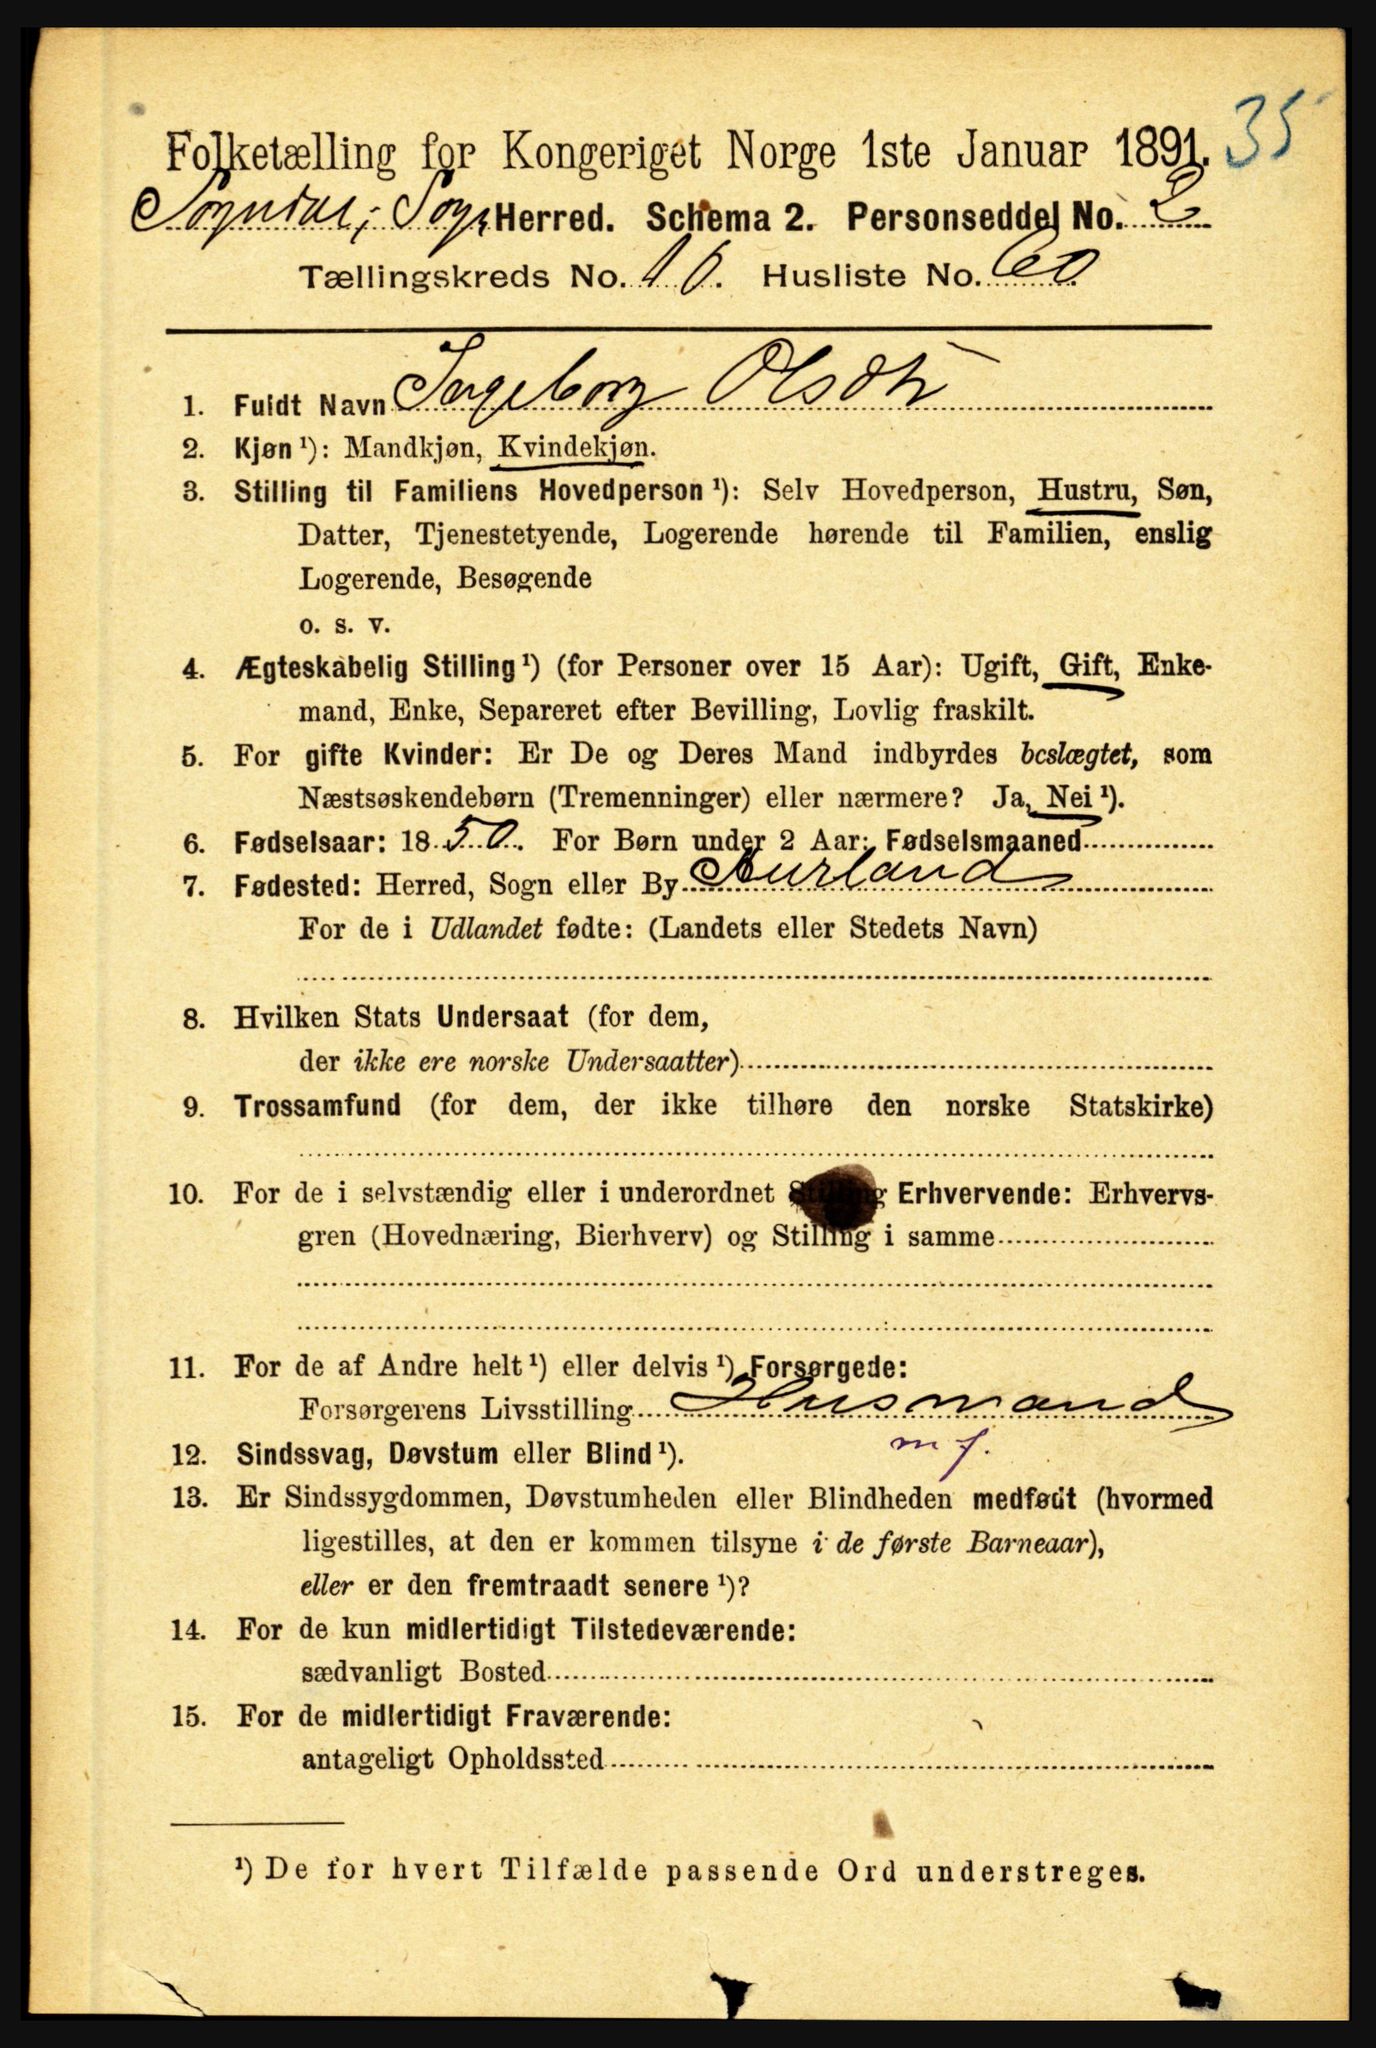 35
Folketælling for Kongeriget Norge 1ste Januar 1891.
Sogndal i Sogn Herred. Schema 2. Personseddel No. 2
Tællingskreds No. 10. Husliste No. 60.
1. Fuldt Navn Ingeborg Olsdtr
2. Kjøn ¹): Mandkjøn, Kvindekjøn.
3. Stilling til Familiens Hovedperson ¹): Selv Hovedperson, Hustru, Søn,
Datter, Tjenestetyende, Logerende hørende til Familien, enslig
Logerende, Besøgende
o. s. v.
4. Ægteskabelig Stilling ¹) (for Personer over 15 Aar): Ugift, Gift, Enke-
mand, Enke, Separeret efter Bevilling, Lovlig fraskilt.
5. For gifte Kvinder: Er De og Deres Mand indbyrdes beslægtet, som
Næstsøskendebørn (Tremenninger) eller nærmere? Ja, Nei ¹).
6. Fødselsaar: 1850. For Børn under 2 Aar: Fødselsmaaned
7. Fødested: Herred, Sogn eller By Aurland
For de i Udlandet fødte: (Landets eller Stedets Navn)
8. Hvilken Stats Undersaat (for dem,
der ikke ere norske Undersaatter)
9. Trossamfund (for dem, der ikke tilhøre den norske Statskirke)
10. For de i selvstændig eller i underordnet Stilling Erhvervende: Erhvervs-
gren (Hovednæring, Bierhverv) og Stilling i samme
11. For de af Andre helt ¹) eller delvis ¹) Forsørgede:
Forsørgerens Livsstilling Husmand
m f.
12. Sindssvag, Døvstum eller Blind ¹).
13. Er Sindssygdommen, Døvstumheden eller Blindheden medfødt (hvormed
ligestilles, at den er kommen tilsyne i de første Barneaar),
eller er den fremtraadt senere ¹)?
14. For de kun midlertidigt Tilstedeværende:
sædvanligt Bosted
15. For de midlertidigt Fraværende:
antageligt Opholdssted
¹) De for hvert Tilfælde passende Ord understreges.